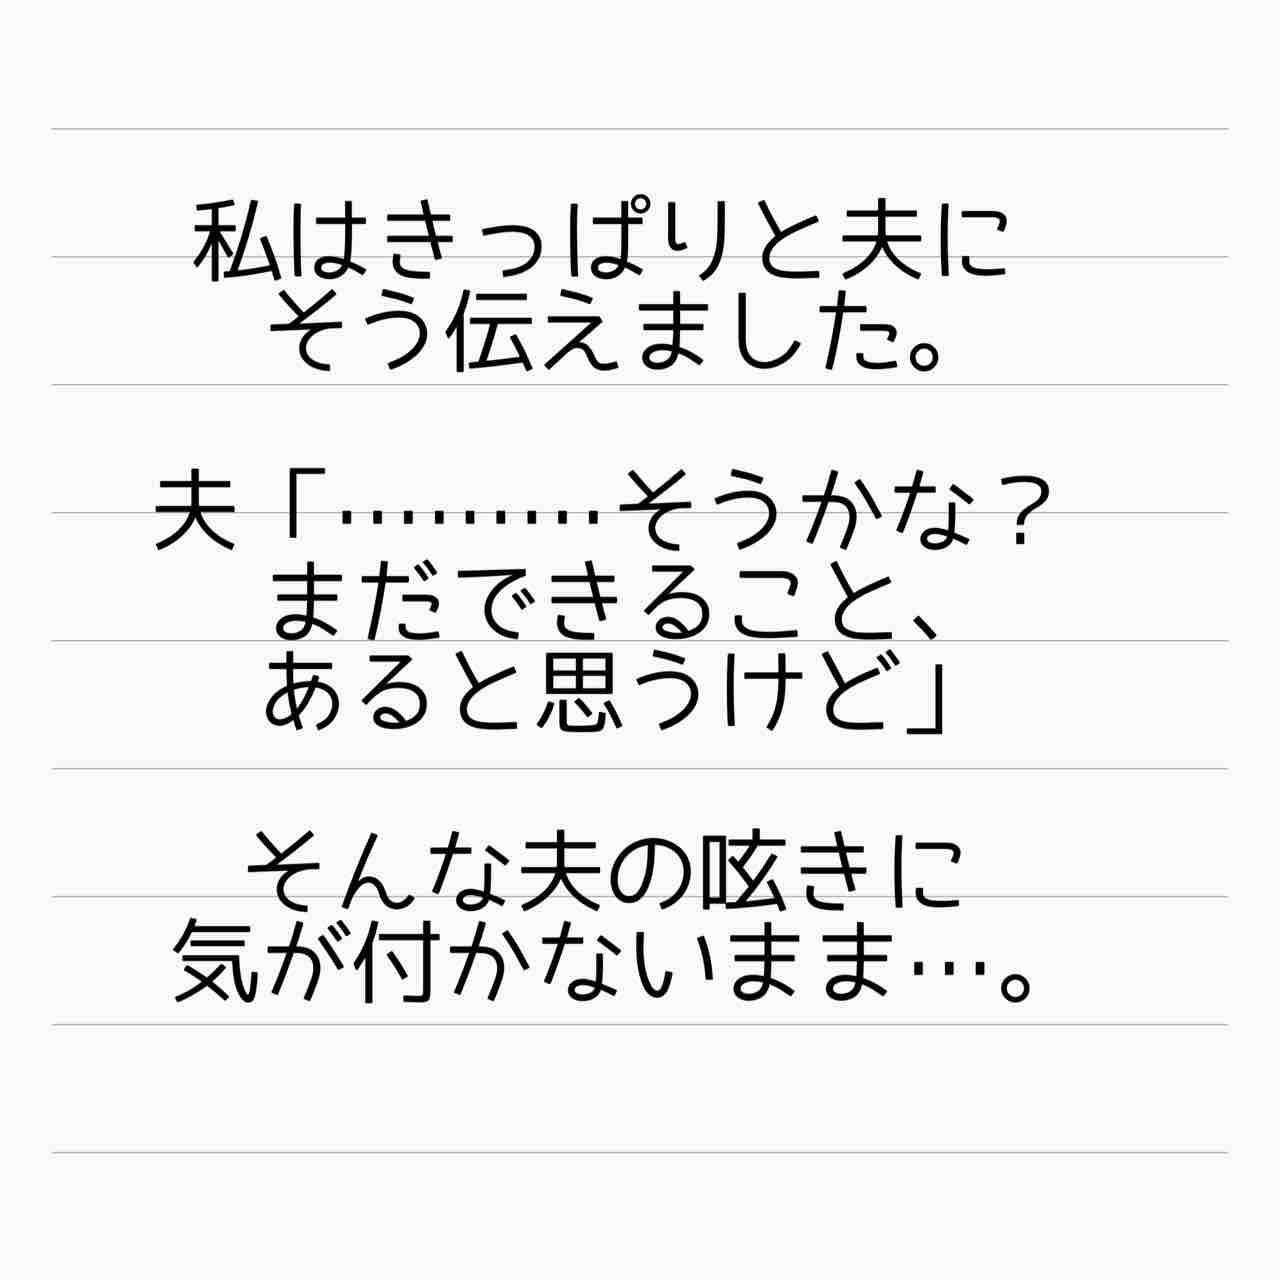 私はきっぱりと夫に
そう伝えました。
夫「………そうかな？
まだできること、
あると思うけど」
そんな夫の呟きに
気が付かないまま…。